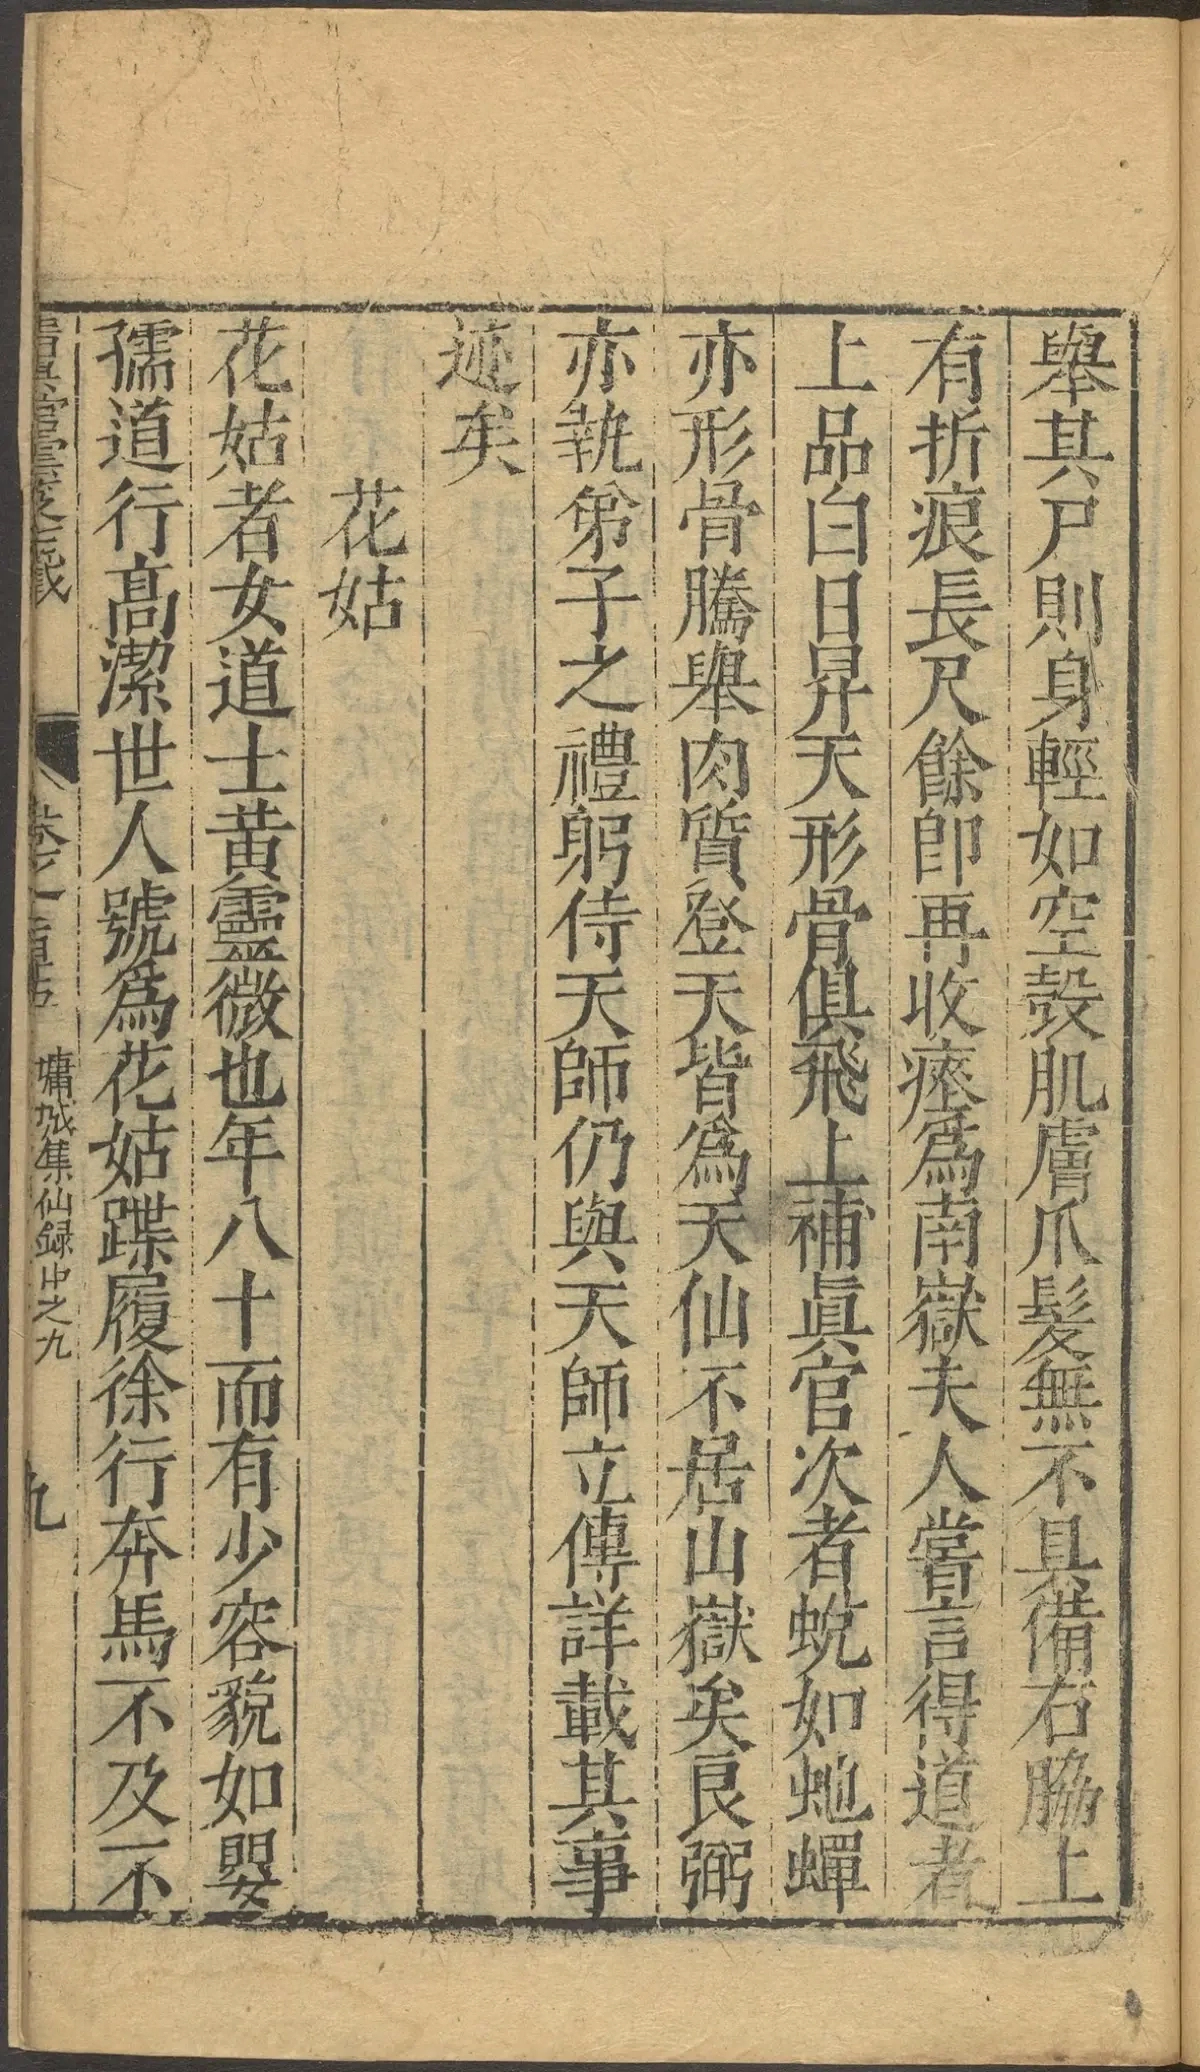 舉其尸則身輕如空殼肌膚爪髮無不具備右脇上
有折痕長尺餘卽再收瘞爲南嶽夫人嘗言得道者
上品白日昇天形骨俱飛上補眞官次者蛻如虵蟬
亦形骨騰舉肉質登天皆爲天仙不居山嶽矣良弼
亦執弟子之禮躬侍天師仍與天師立傳詳載其事
迹矣
花姑
花姑者女道士黃靈微也年八十而有少容貌如嬰
孺道行高潔世人號爲花姑蹀履徐行奔馬不及不
墉城集仙録中之九
九